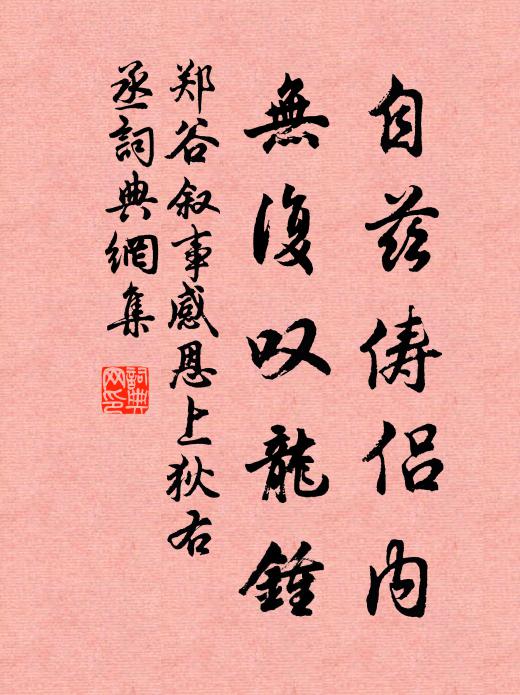 自兹儔侣内
無復叹龍鍾
郑谷叙事感恩上狄右
丞詞典網集
詞典網印